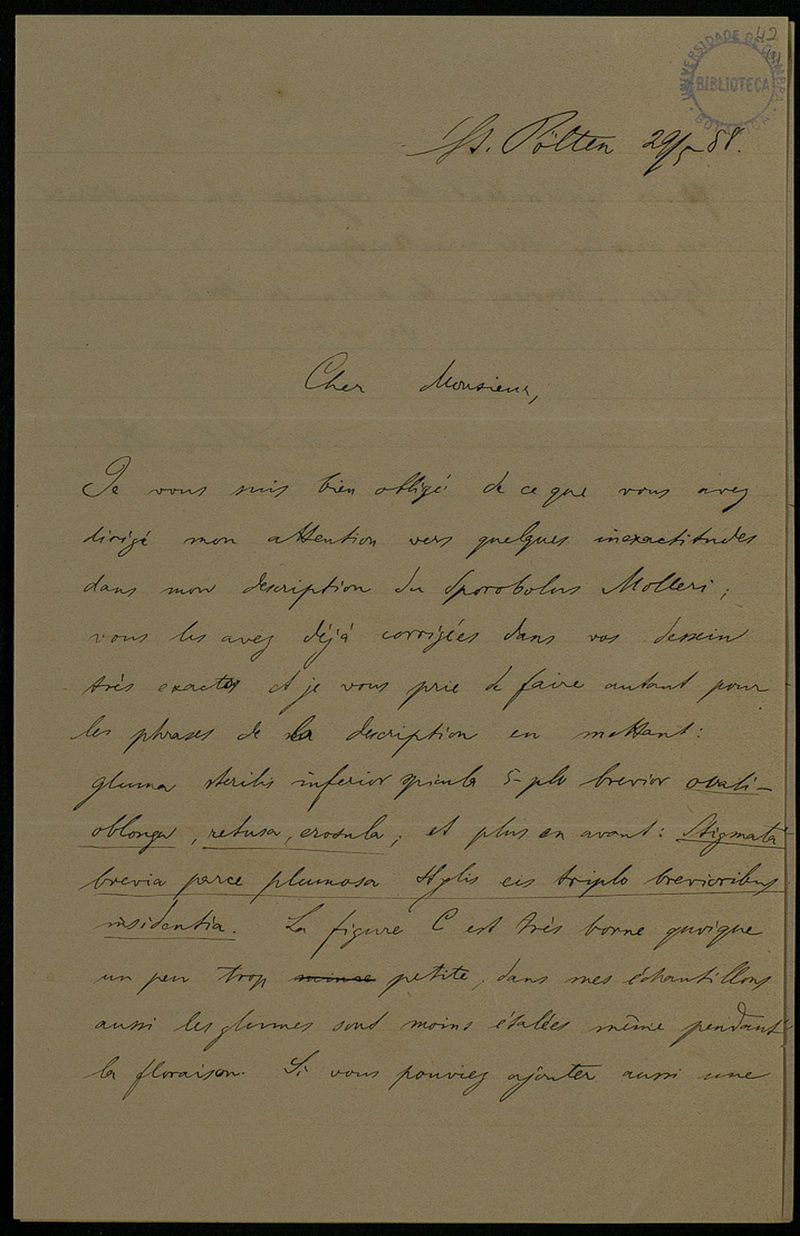 42
UNIVERSIDADE DE COIMBRA
BIBLIOTECA
BOTANICA
St. Pölten 29/5 88.
Cher Monsieur,
Je vous suis bien obligé de ce que vous avez
dirigé mon attention vers quelques inexactitudes
dans mon description du Sporobolus Molleri;
vous les avez déjà corrigées dans vos dessein
très exactes et je vous prie de faire autant pour
les phrases de la description en mettant:
gluma sterilis inferior spicula 5-plo brevior ovali-
oblonga, retusa, erosula; et plus en avant: Stigmata
brevia parce plumosa stylis eis triplo brevioribus
insidentia. La figure C est très bonne quoique
un peu trop mince petite; dans mes échantillons
aussi les glumes sont moins étalées même pendant
la floraison. Si vous pouviez ajouter aussi une